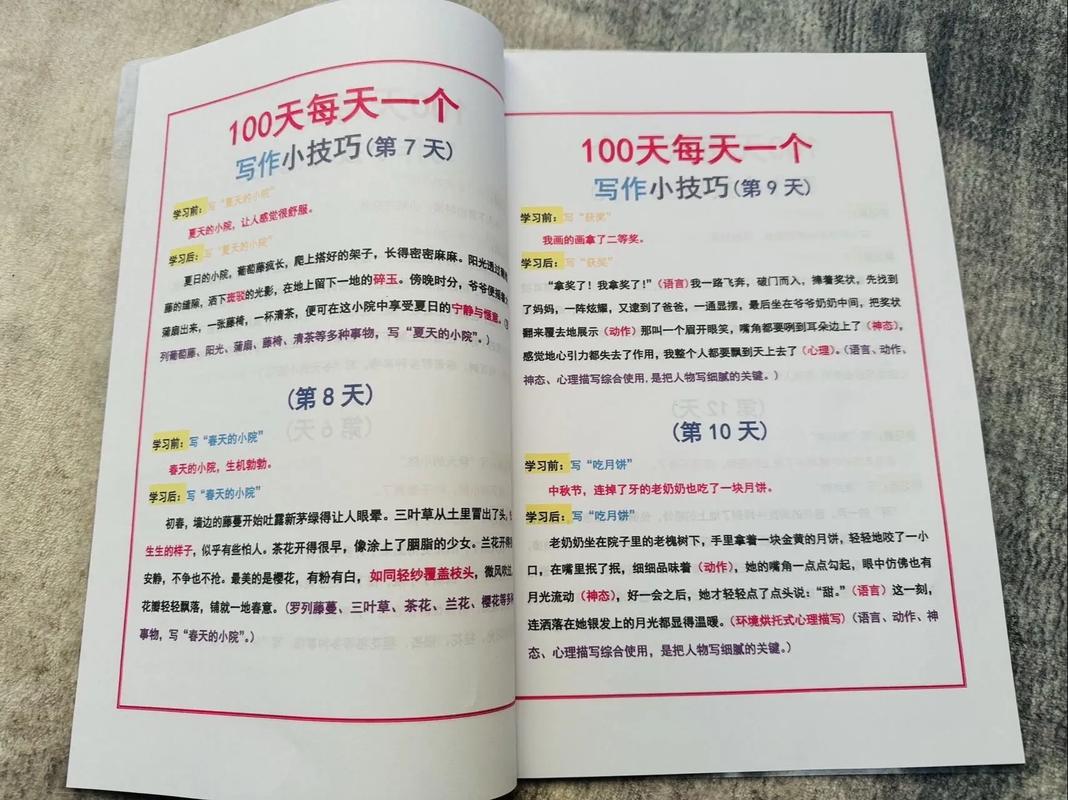 100天每天一个
写作小技巧(第 7 天)
学习前：写“夏天的小院”
夏天的小院，让人感觉很舒服。
学习后：写“夏天的小院”
夏日的小院，葡萄藤疯长，爬上搭好的架子，长得密密麻麻。阳光透过
藤的缝隙，洒下斑驳的光影，在地上留下一地的碎玉。傍晚时分，爷爷便
蒲扇出来，一张藤椅，一杯清茶，便可在这小院中享受夏日的宁静与惬意。
列葡萄藤、阳光、蒲扇、藤椅、清茶等多种事物，写“夏天的小院”。）
(第 8 天)
学习前：写“春天的小院”
春天的小院，生机勃勃。
学习后：写“春天的小院”
初春，墙边的藤蔓开始吐露新茅绿得让人眼晕。三叶草从土里冒出了头，
生生的样子，似乎有些怕人。茶花开得很早，像涂上了胭脂的少女。兰花开得
安静，不争也不抢。最美的是樱花，有粉有白，如同轻纱覆盖枝头，微风吹过，
花瓣轻轻飘落，铺就一地春意。（罗列藤蔓、三叶草、茶花、兰花、樱花等多
事物，写“春天的小院”。）
100天每天一个
写作小技巧(第 9 天)
学习前：写“获奖”
我画的画拿了二等奖。
学习后：写“获奖”
“拿奖了！我拿奖了！”（语言）我一路飞奔，破门而入，捧着奖状，先找到
了妈妈，一阵炫耀，又逮到了爸爸，一通显摆，最后坐在爷爷奶奶中间，把奖状
翻来覆去地展示（动作）那叫一个眉开眼笑，嘴角都要咧到耳朵边上了（神态）。
感觉地心引力都失去了作用，我整个人都要飘到天上去了（心理）。（语言、动作、
神态、心理描写综合使用,是把人物写细腻的关键。）
(第 10 天)
学习前：写“吃月饼”
中秋节，连掉了牙的老奶奶也吃了一块月饼。
学习后：写“吃月饼”
老奶奶坐在院子里的老槐树下，手里拿着一块金黄的月饼，轻轻地咬了一小
口，在嘴里抿了抿，细细品味着（动作），她的嘴角一点点勾起，眼中仿佛也有
月光流动（神态），好一会之后，她才轻轻点了点头说：“甜。”（语言）这一刻，
连洒落在她银发上的月光都显得温暖。（环境烘托式心理描写）（语言、动作、神
态、心理描写综合使用，是把人物写细腻的关键。）